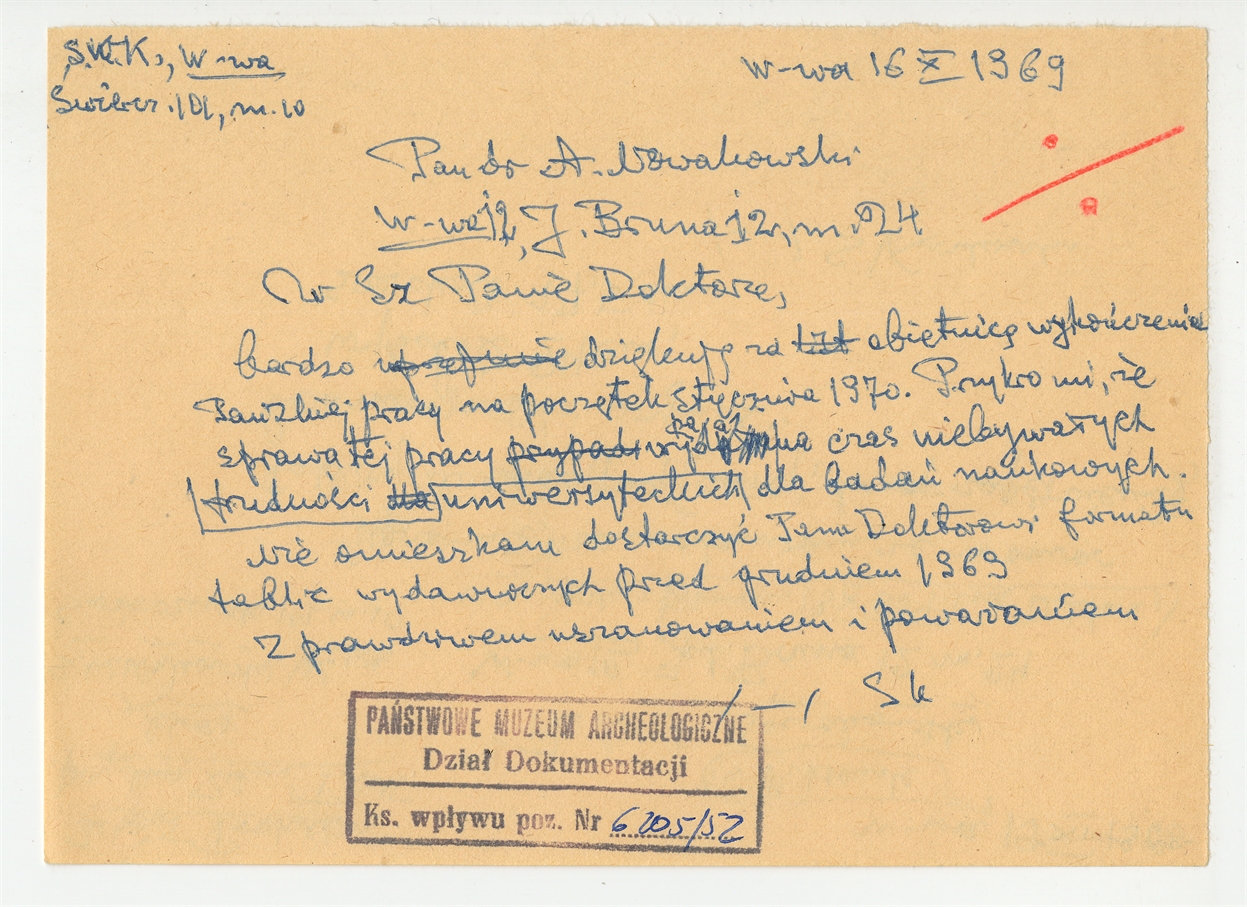 S.K.K., W-wa
Świercz. 101, m. 10
W-wa 16 X 1969
Pan dr A. Nowakowski
W-wa 12, J. Bruna 12, m. 24
W Sz Panie Doktorze,
bardzo uprzejmie dziękuję za obietnicę wykończenia
Pańskiej pracy na początek stycznia 1970. Przykro mi, że
sprawa tej pracy przypad na czas niebywałych
trudności uniwersyteckich dla badań naukowych.
Nie omieszkam dostarczyć Panu Doktorowi formatu
tablic wydawniczych przed grudniem 1969
Z prawdziwem uszanowaniem i poważaniem
/—/ Sk
PAŃSTWOWE MUZEUM ARCHEOLOGICZNE
Dział Dokumentacji
Ks. wpływu poz. Nr 6205/52